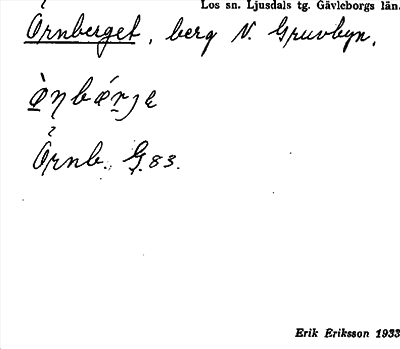 Los sn. Ljusdals tg. Gävleborgs län.
Örnberget, berg N. Gruvbyn.
Örnb. G. 83.
Erik Eriksson 1933